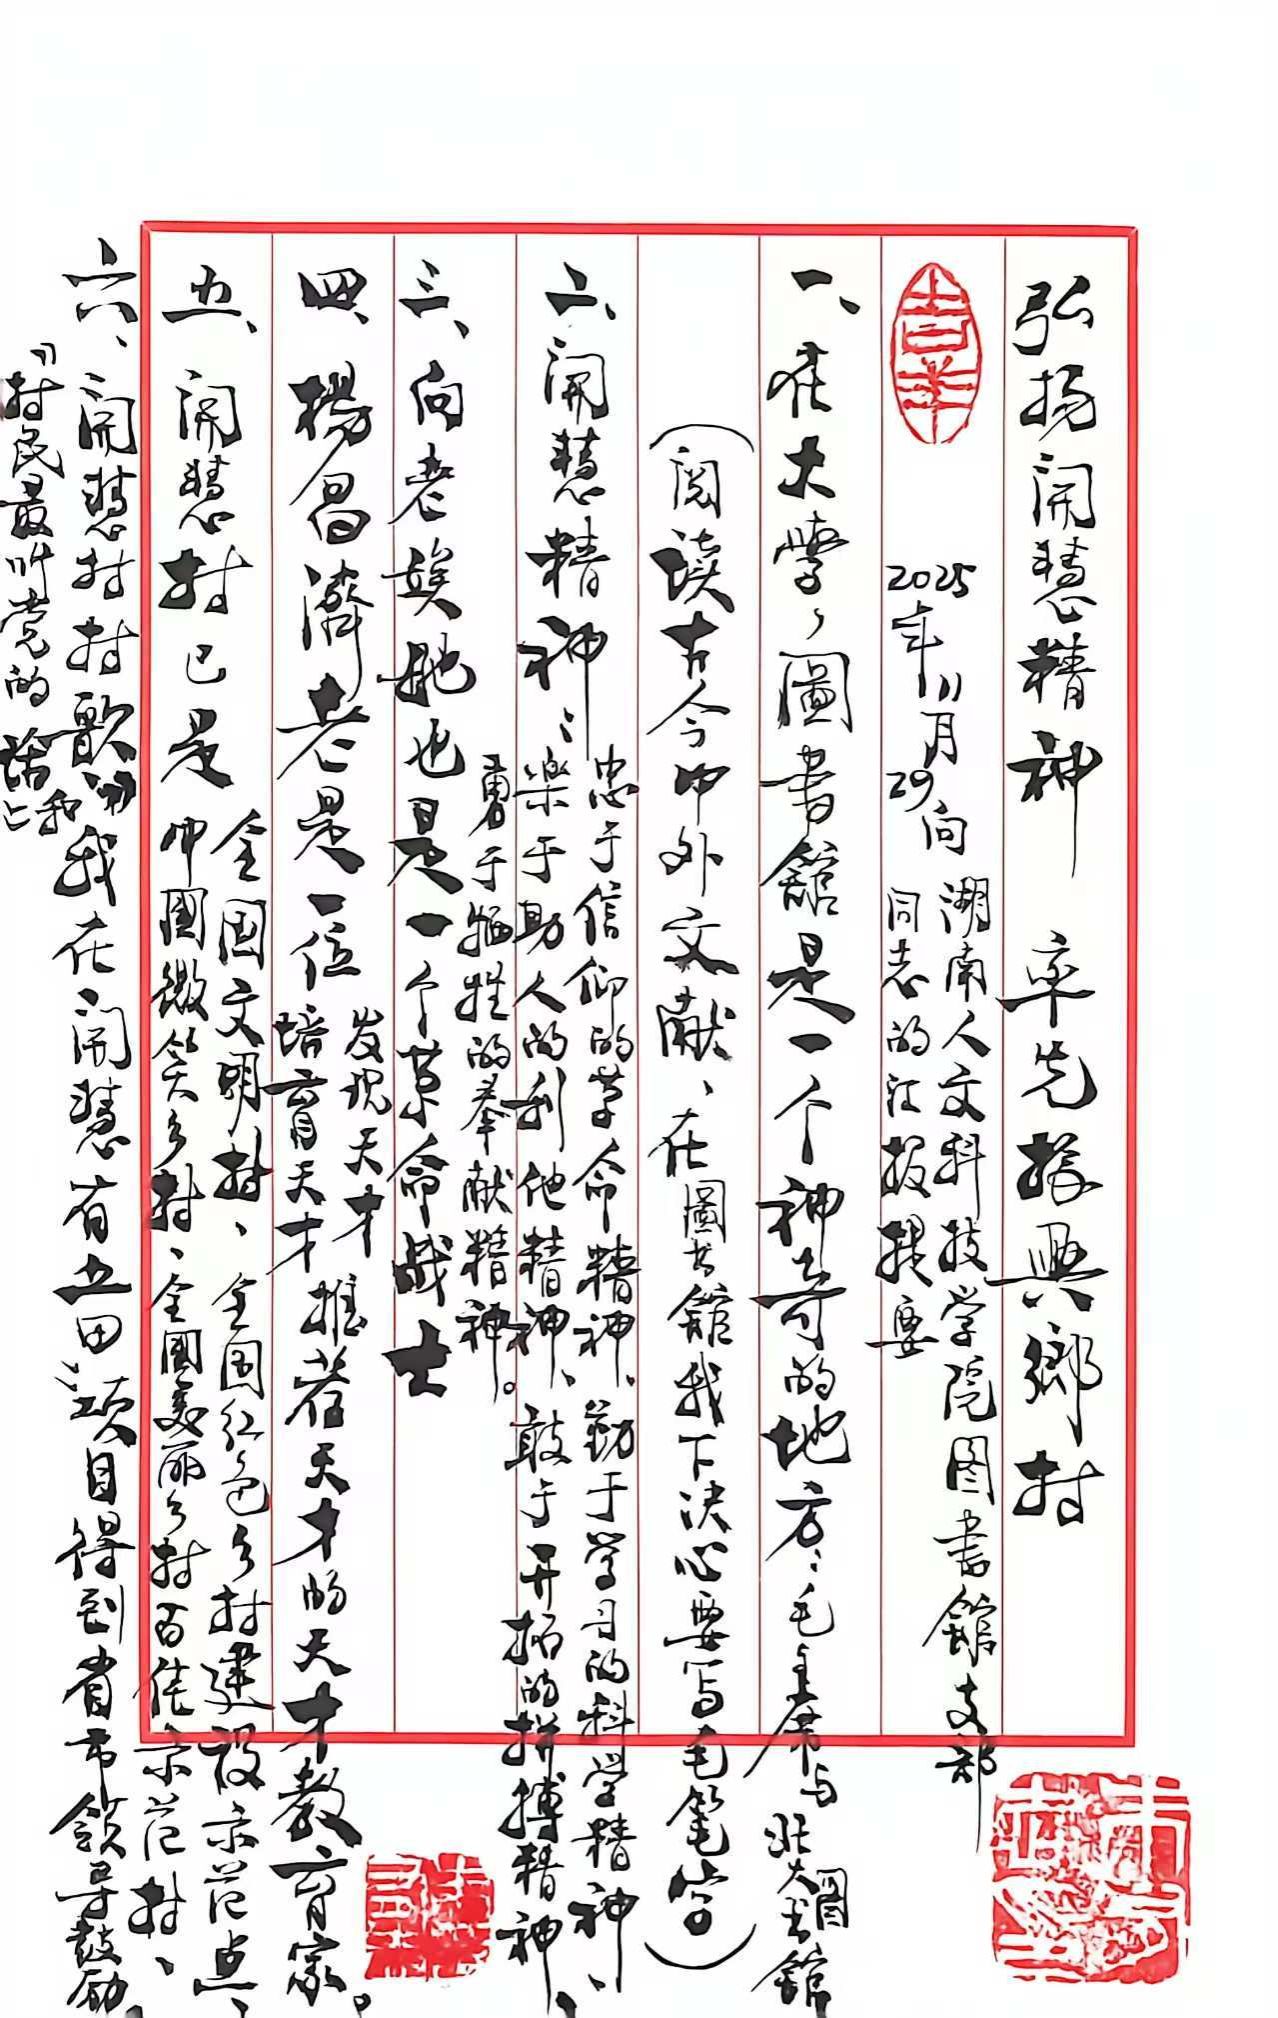 弘扬開慧精神 率先振興鄉村
2025年11月29向湖南人文科技学院图書館支部
同志的汇报提要
一、在大學、圖書館是一个神奇的地方：毛主席与北大图书館
（阅读古今中外文献、在圖书館我下决心要写毛笔字）
二、開慧精神：忠于信仰的革命精神、勤于学习的科学精神、
樂于助人的利他精神、敢于开拓的拼搏精神、
勇于牺牲的奉献精神。
三、向老 她也是一个革命战士
四、楊昌濟老是一位发现天才
培育天才推荐天才的天才教育家。
五、開慧村已是全国文明村、全国红色乡村建设示范点、
中國微笑乡村、全國美丽乡村百佳示范村、
六、開慧村村歌词和我在開慧有五田项目得到省市领导鼓励。
《村民最听党的话》